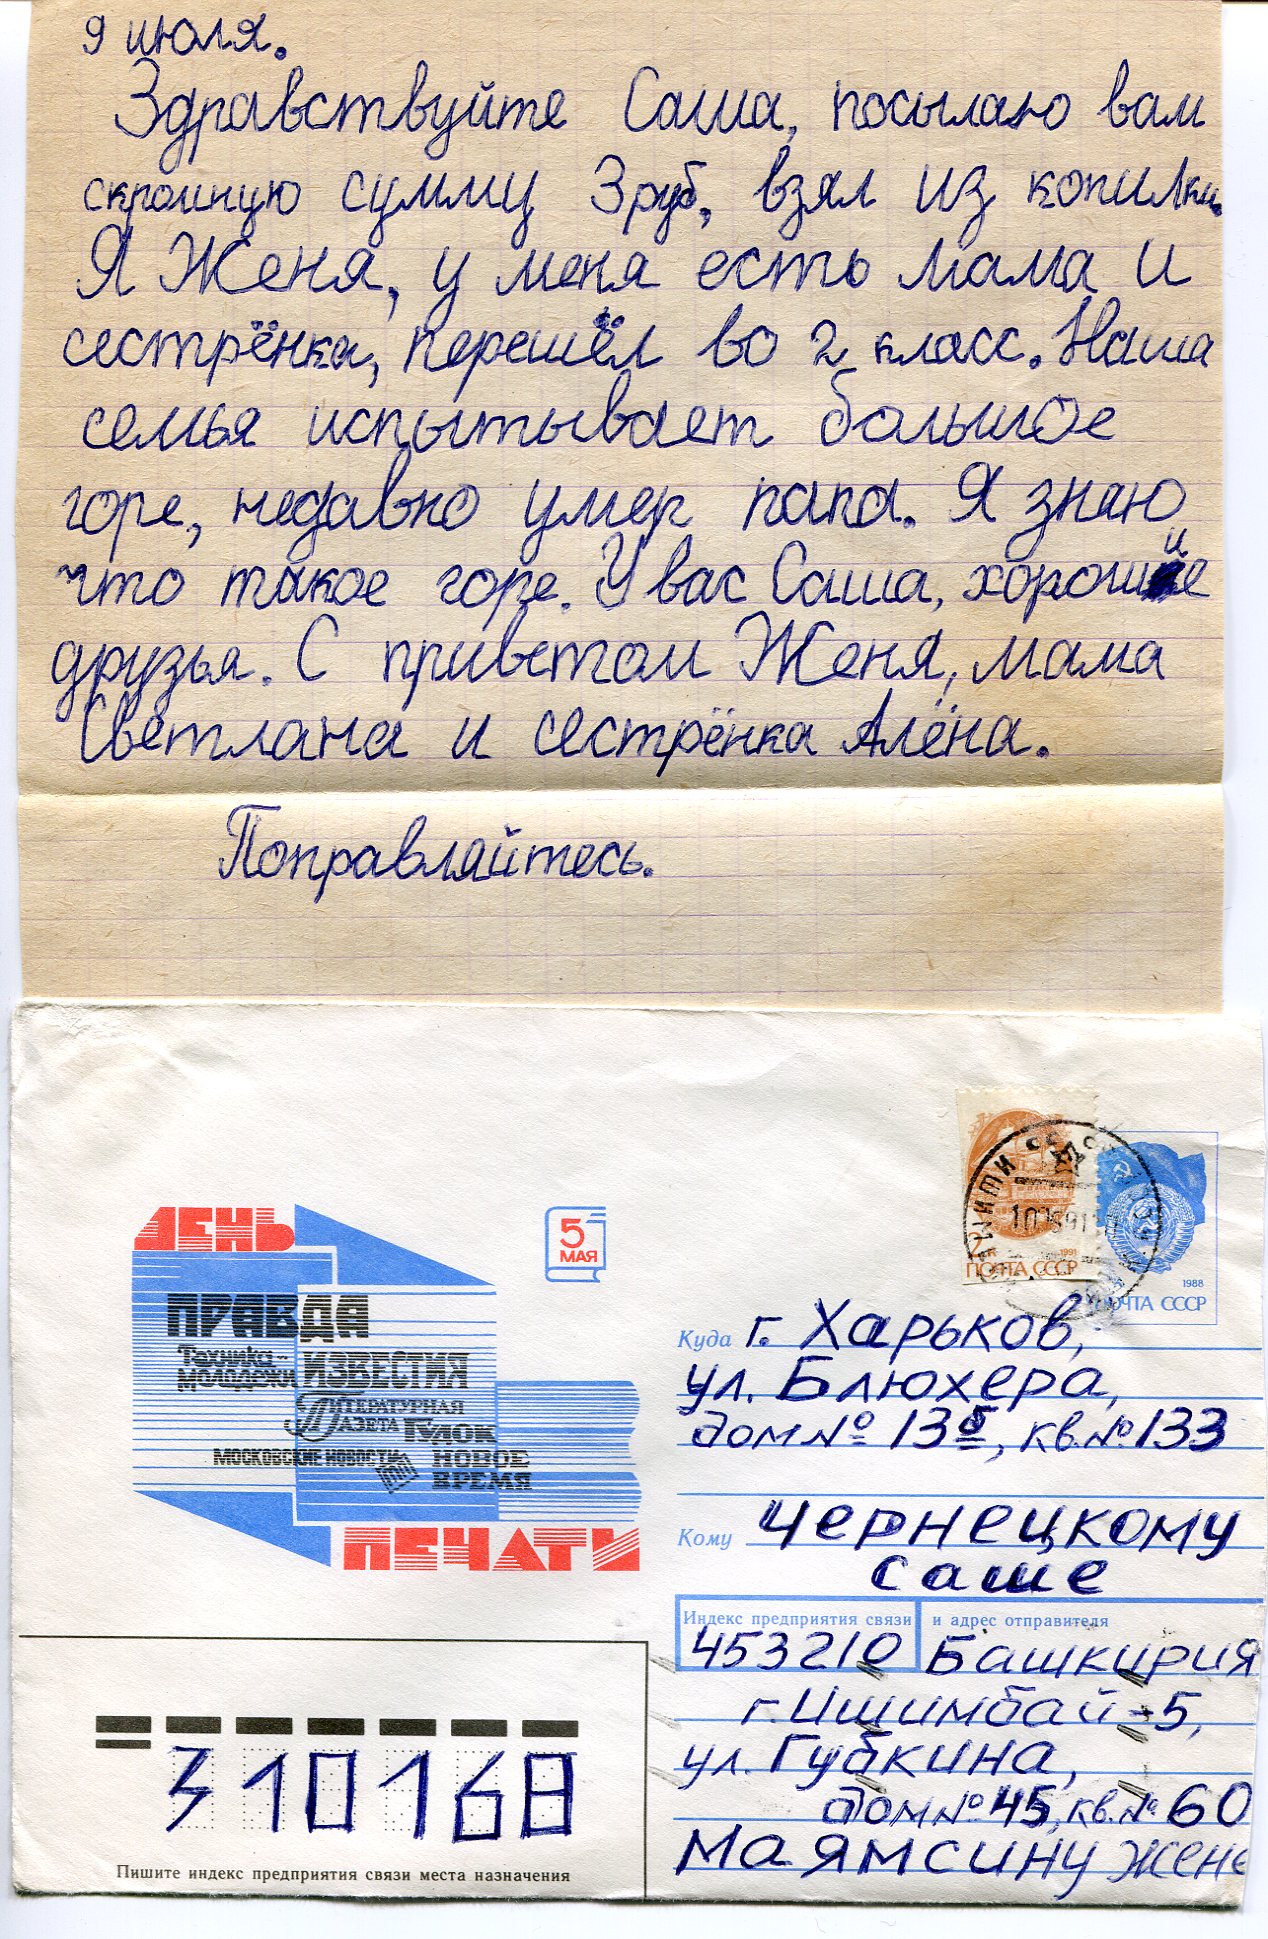 9 июля.
Здравствуйте Саша, посылаю вам
скромную сумму 3 руб, взял из копилки.
Я Женя, у меня есть мама и
сестрёнка, перешёл во 2 класс. Наша
семья испытывает большое
горе, недавно умер папа. Я знаю
что такое горе. У вас Саша, хорошие
друзья. С приветом Женя, мама
Светлана и сестрёнка Алёна.
Поправляйтесь.
2к
1991
ПОЧТА СССР
1988
ПОЧТА СССР
ДЕНЬ
5
МАЯ
ПРАВДА
Техника-
молодежи
ИЗВЕСТИЯ
ЛИТЕРАТУРНАЯ
ГАЗЕТА
ГУДОК
МОСКОВСКИЕ НОВОСТИ
НОВОЕ
ВРЕМЯ
ПЕЧАТИ
Куда г. Харьков,
ул. Блюхера,
дом № 13б, кв. № 133
Кому Чернецкому
Саше
Индекс предприятия связи и адрес отправителя
453210 Башкирия
г. Ишимбай-5,
ул. Губкина,
дом № 45, кв. № 60
Маямсину Жене
310168
Пишите индекс предприятия связи места назначения